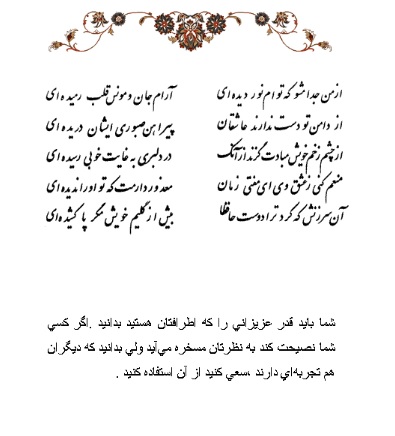 ازمن جدا مشو که توام نور دیده‌ای آرام جان و مونس قلب رمیده‌ای
از دامن تو دست ندارند عاشقان پیراهن صبوری ایشان دریده‌ای
از چشم زخم خویش مبادت گزند از آنک در دلبری به غایت خوبی رسیده‌ای
منعم کنی ز عشق وی ای مفتی زمان معذور دارمت که تو او را ندیده‌ای
آن سرزنش که کرد ترا دوست حافظا بیش از گلیم خویش مگر پا کشیده‌ای
شما بايد قدر عزيزاني را که اطرافتان هستيد بدانيد .اگر کسي
شما نصيحت کند به نظرتان مسخره مي‌آيد ولي بدانيد که ديگران
هم تجربه‌اي دارند ،سعي کنيد از آن استفاده کنيد .